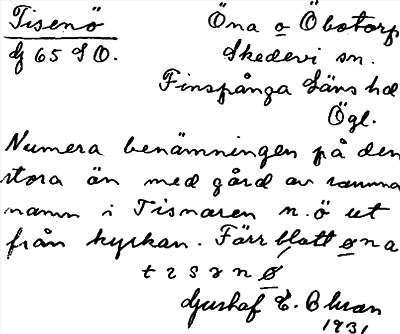 Tisenö Öna o Öbotorp
Dj 65 S O. Skedevi sn.
Finspånga Läns hd
Ögl.
Numera benämningen på den
stora ön med gård av samma
namn i Tisnaren n. ö ut
från kyrkan. Förr blott øna
Gustaf E. Bhran
1931